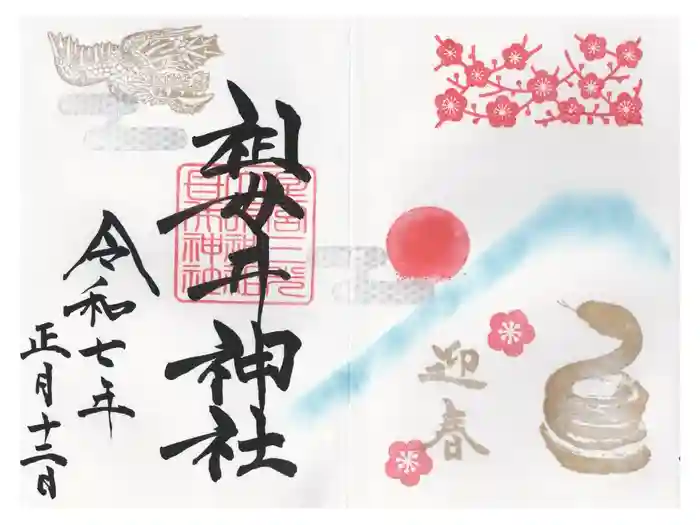 迎春
祖母井神社
令和七年
正月十二日